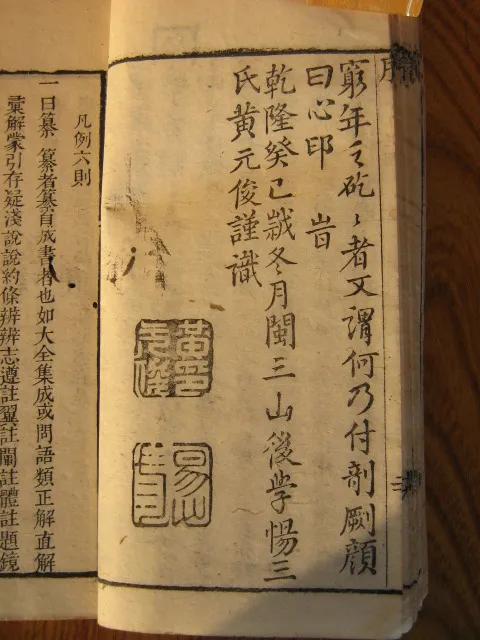 窮年之矻〻者又謂何乃付剞劂顏
曰心印 旹
乾隆癸巳歲冬月閩三山後學惕三
氏黃元俊謹識
黃印
元俊
凡例六則
一曰纂 纂者纂自成書者也如大全集成或問語類正解直解
彙解蒙引存疑淺說說約條辨辨志遵註翼註闡註體註題鏡